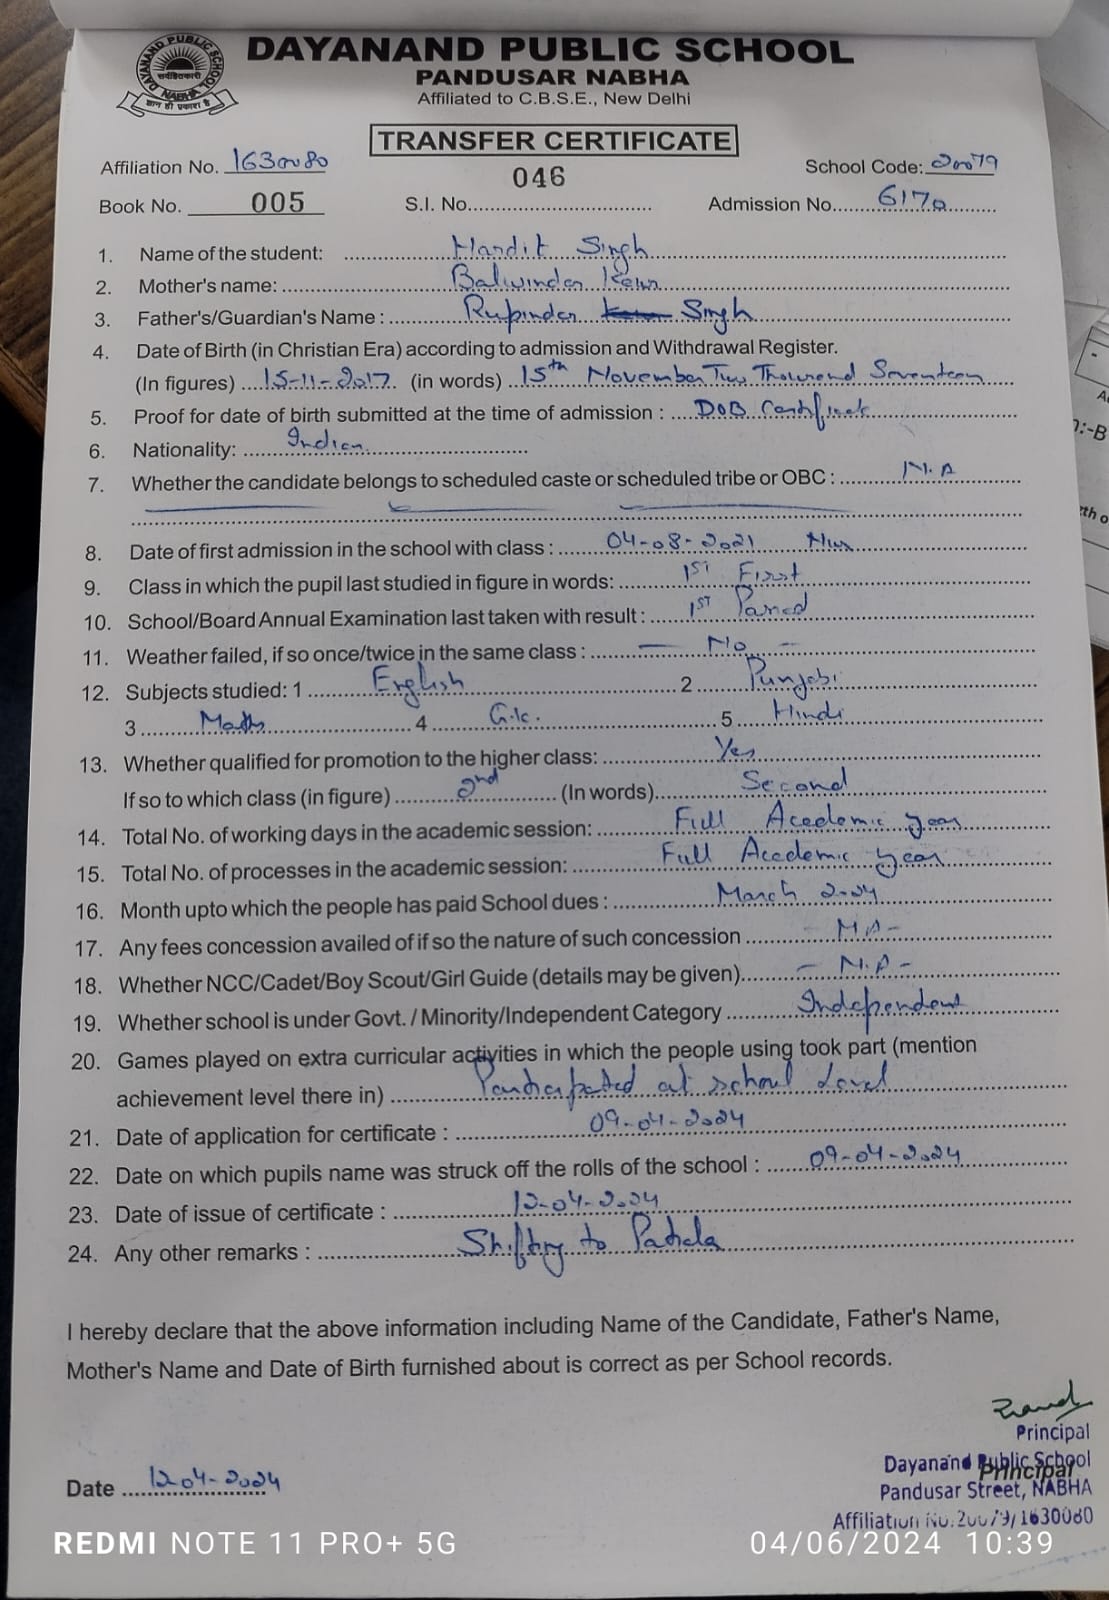 DAYANAND PUBLIC SCHOOL
PANDUSAR NABHA
Affiliated to C.B.S.E., New Delhi
DAYANAND PUBLIC SCHOOL
सर्वहितकारी
NABHA
ज्ञान ही प्रकाश है
TRANSFER CERTIFICATE
Affiliation No. 1630080 046 School Code: 20079
Book No. 005 S.I. No. Admission No. 6170
1. Name of the student: Hardit Singh
2. Mother's name: Balwinder Kaur
3. Father's/Guardian's Name : Rupinder Singh
4. Date of Birth (in Christian Era) according to admission and Withdrawal Register.
(In figures) 15-11-2017. (in words) 15th November Two Thousand Seventeen
5. Proof for date of birth submitted at the time of admission : DOB Certificate
6. Nationality: Indian
7. Whether the candidate belongs to scheduled caste or scheduled tribe or OBC : N.A
8. Date of first admission in the school with class : 04-08-2021 Nur
9. Class in which the pupil last studied in figure in words: 1st First
10. School/Board Annual Examination last taken with result : 1st Passed
11. Weather failed, if so once/twice in the same class : — No —
12. Subjects studied: 1 English 2 Punjabi
3 Maths 4 G.k. 5 Hindi
13. Whether qualified for promotion to the higher class: Yes
If so to which class (in figure) 2nd (In words) Second
14. Total No. of working days in the academic session: Full Academic year
15. Total No. of processes in the academic session: Full Academic year
16. Month upto which the people has paid School dues : March 2024
17. Any fees concession availed of if so the nature of such concession - N.A -
18. Whether NCC/Cadet/Boy Scout/Girl Guide (details may be given) - N.A -
19. Whether school is under Govt. / Minority/Independent Category Independent
20. Games played on extra curricular activities in which the people using took part (mention
achievement level there in) Participated at school Level
21. Date of application for certificate : 09-04-2024
22. Date on which pupils name was struck off the rolls of the school : 09-04-2024
23. Date of issue of certificate : 12-04-2024
24. Any other remarks : Shifting to Patiala
I hereby declare that the above information including Name of the Candidate, Father's Name,
Mother's Name and Date of Birth furnished about is correct as per School records.
Principal
Dayanand Public School
Principal
Date 12-04-2024
Pandusar Street, NABHA
Affiliation No. 20079/1630080
REDMI NOTE 11 PRO+ 5G 04/06/2024 10:39